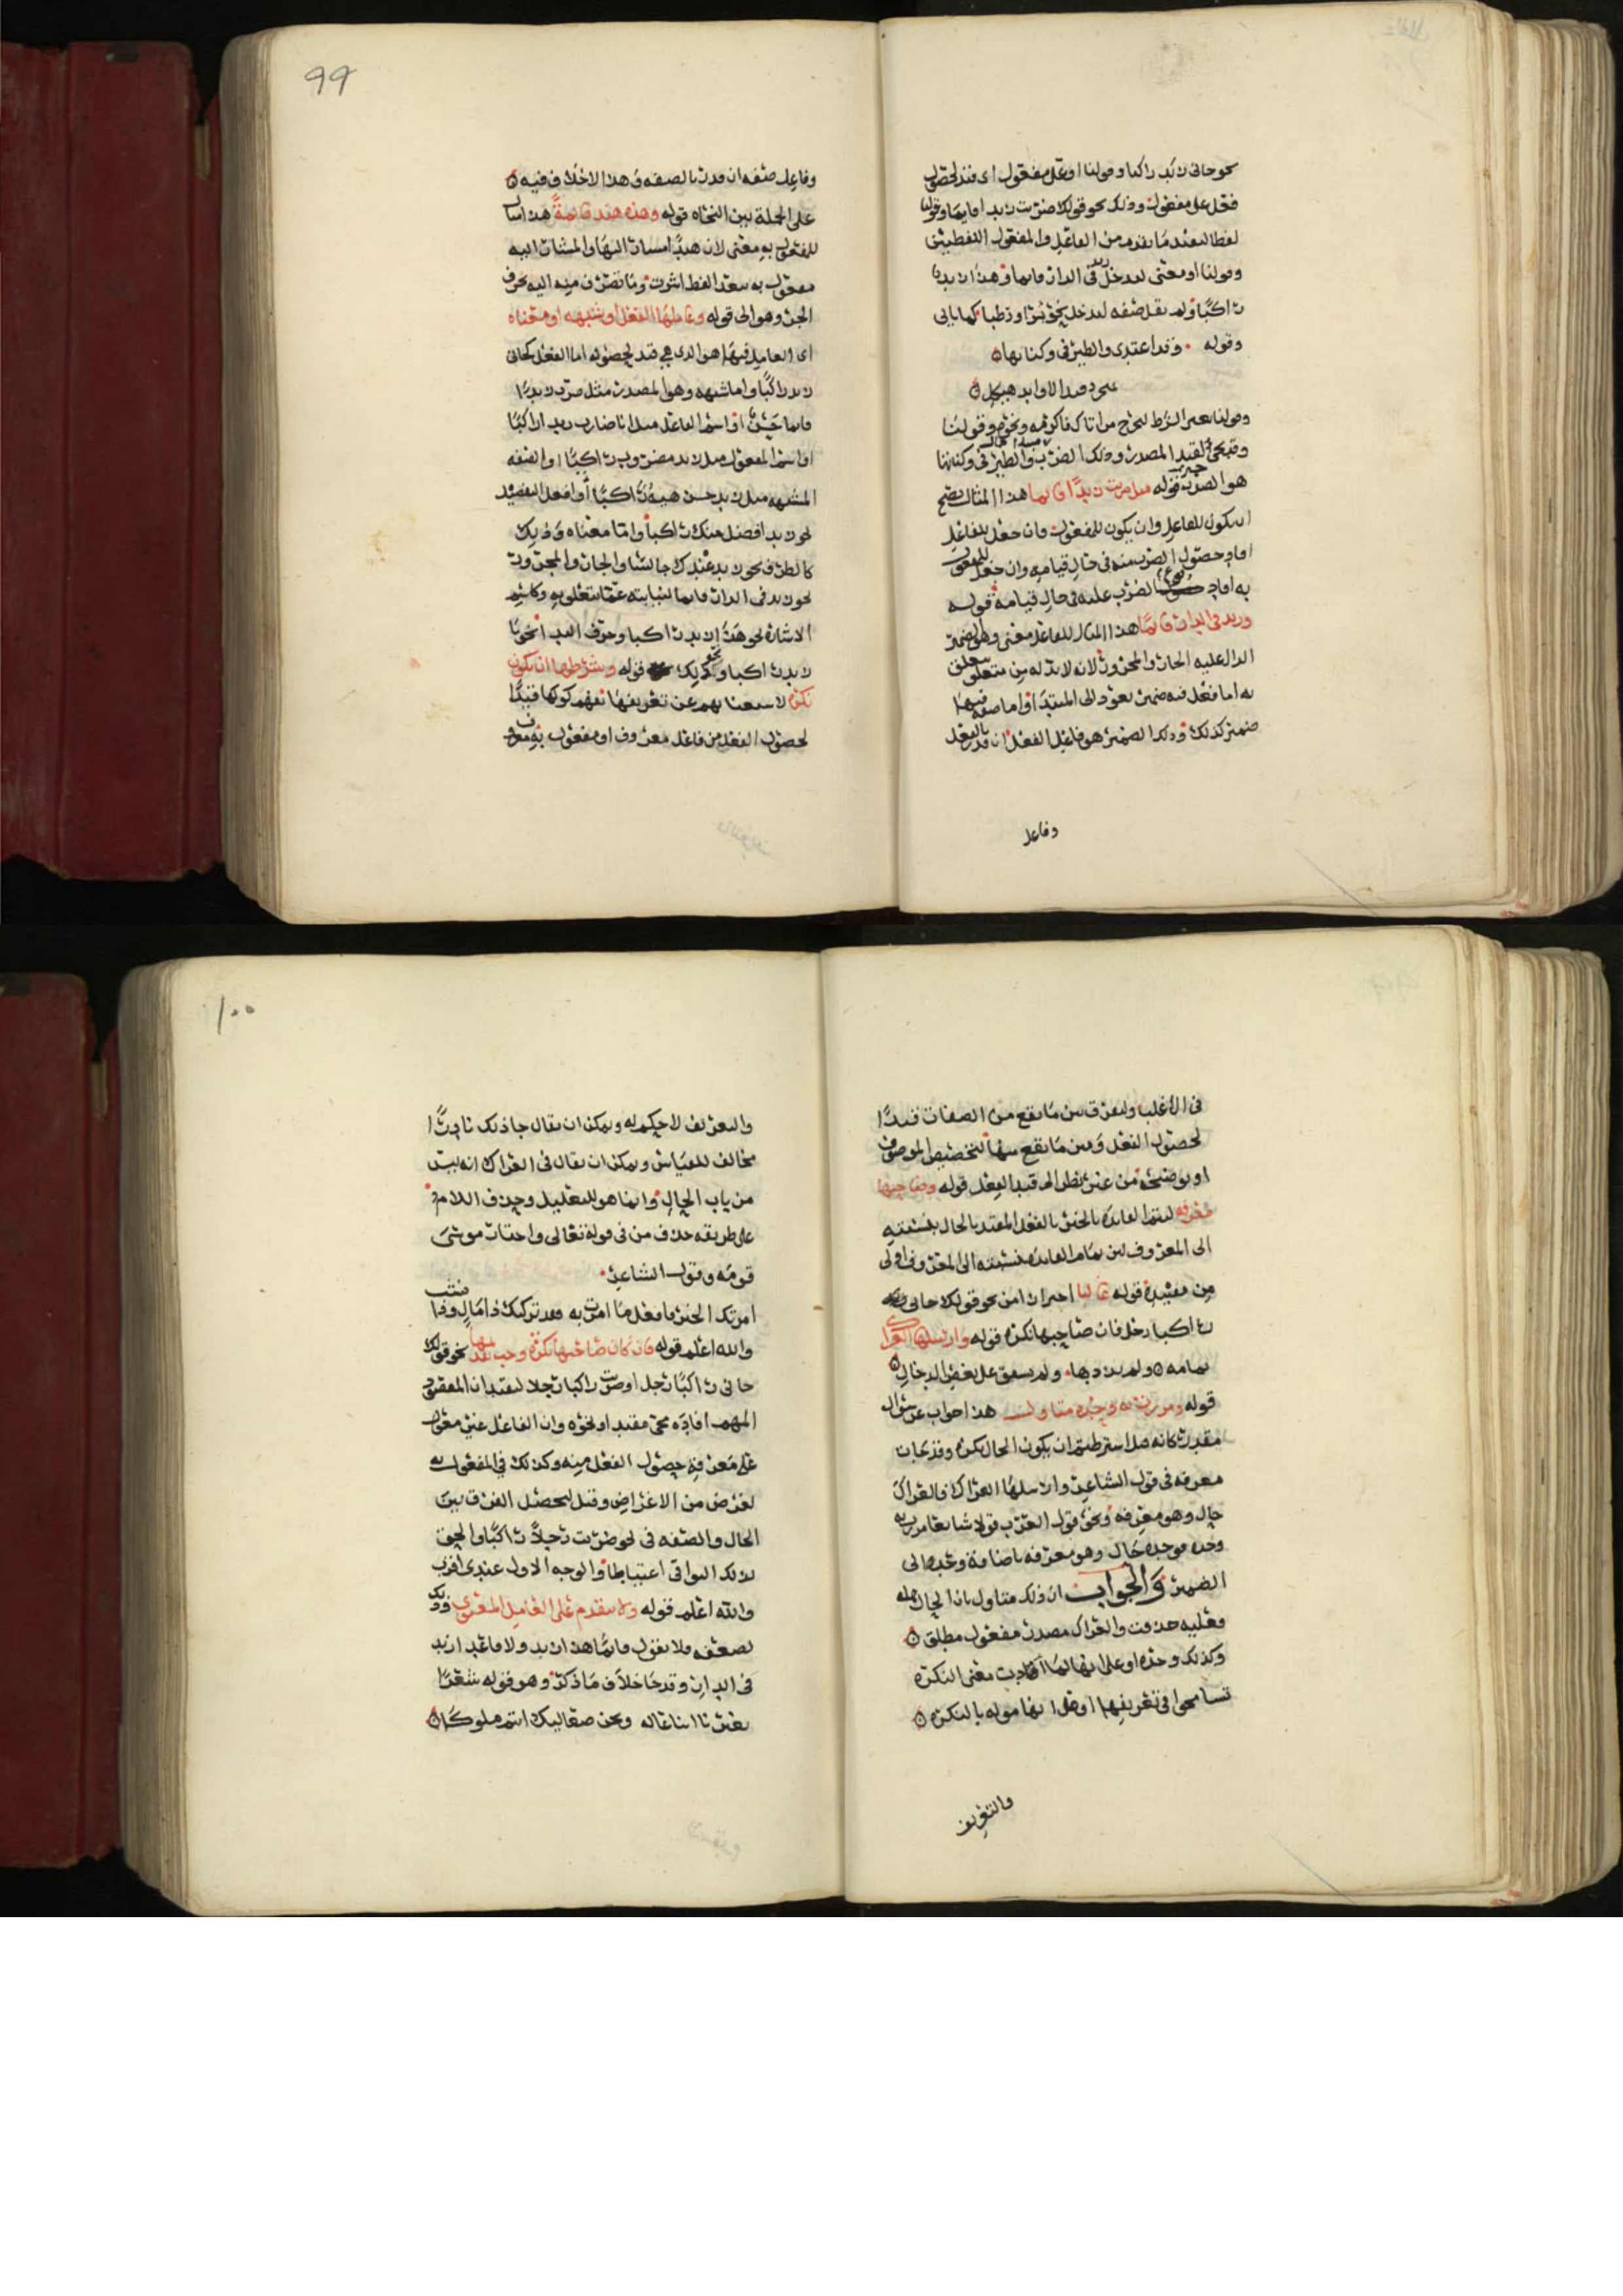 نحو جاني زيد راكبا وقولنا او على مفعول اي قيد لحصول
فعل على مفعول وذلك نحو قولك ضربت زيدا قايما وقولنا
لفظا لتعبد ما تقدم من الفاعل والمفعول اللفظيين
وقولنا او معنى ليدخل زيد في الدار قايما وهذا زيد
راكبا ولم نقل صفه ليدخل نحو بسرا ورطبا كما ياتي
وقوله وقد اغتدي والطير في وكناتها
بمنجرد قيد الاوابد هيكل
وقولنا بغير الشرط ليخرج من اتاك فاكرمه ونحوه وقولنا
المصدر وذلك الضرب والطير في وكناتها
هو الضرب قوله مثل ضربت زيدا قايما هذا المثال يصح
ان يكون للفاعل وان يكون للمفعول فان جعل للفاعل
افاد حصول الضرب منه في حال قيامه وان جعل للمفعول
به افاد الضرب عليه في حال قيامه قوله
وزيد في الدار قايما هذا المثال للفاعل معنى وهو الضمير
الدال عليه الجار والمجرور لانه لا بد له من متعلق
به اما فعل فيه ضمير يعود الى المبتدا او اما صفه فيها
ضمير كذلك وذلك الضمير هو فاعل الفعل ان قدر بالفعل
وفاعل
99
وفاعل صفه ان قدر بالصفه وهذا لا خلاف فيه
على الجملة بين النحاه قوله وهذه هند قايمة هذا مثال
للمفعول به معنى لان هندا مشار اليها والمشار اليه
مفعول به بعد لفظ اشرت وما تصرف منه اليه بحرف
الجر وهو الى قوله وعاملها الفعل او شبهه او معناه
اي العامل فيها هو الذي هي قيد لحصوله اما الفعل كجاني
زيد راكبا واما شبهه وهو المصدر مثل ضرب زيدا
قايما حسن او اسم الفاعل مثل انا ضارب زيدا راكبا
او اسم المفعول مثل زيد مضروب راكبا او الصفه
المشبهه مثل زيد حسن هيئة راكبا او افعل التفضيل
نحو زيد افضل منك راكبا واما معناه وذلك
كالظرف نحو زيد عندك جالسا والجار والمجرور
نحو زيد في الدار قايما لنيابته عما يتعلق به وكاسم
الاشارة نحو هذا زيد راكبا وحرف النداء نحو يا
زيد راكبا ونحو ذلك قوله وشرطها ان تكون
نكرة لاستغنايهم عن تعريفها بفهم كونها قيدا
لحصول الفعل من فاعل معروف او مفعول به معروف
في الاغلب وليفرق بين ما يقع من الصفات قيدا
لحصول الفعل وبين ما يقع منها لتخصيص الموصوف
او توضيحه من غير نظر الى قيد الفعل قوله وصاحبها
معرفه لتتم الفايدة بالخبر بالفعل المقيد بالحال بنسبته
الى المعروف لان تمام الفايدة بنسبته الى المعروف اولى
من مقيده قوله غالبا احتراز من نحو قولك جاني
راكبا رجل فان صاحبها نكرة قوله وارسلها العراك
تمامه ولم يذدها ولم يشفق على نغص الدخال
قوله ومررت به وحده متاول هذا جواب عن سؤال
مقدر كانه قيل اشترطتم ان يكون الحال نكرة وقد جات
معرفه في قول الشاعر وارسلها العراك فالعراك
حال وهو معرفه ونحو قول العرب قولا شايعا مررت به
وحده فوحده حال وهو معرفه باضافة وحد الى
الضمير والجواب ان ذلك متاول بان الحال جمله
فعليه حذفت والعراك مصدر مفعول مطلق
وكذلك وحده او على انها لما افادت معنى النكرة
تسامحوا في تعريفها او على انها مؤوله بالنكرة
والتعريف
100
والتعريف لا حكم له ويمكن ان يقال جا ذلك نادرا
مخالف للقياس ويمكن ان يقال في العراك انه ليس
من باب الحال وانما هو للتعليل وحذف اللام
على طريقه حذف من في قوله تعالى واختار موسى
قومه وقول الشاعر
امرتك الخير فافعل ما امرت به فقد تركتك ذا مال وذا نشب
والله اعلم قوله فان كان صاحبها نكرة وجب تقديمها نحو قولك
جاني راكبا رجل او ضربت راكبا رجلا لتقيد ان المقصود
المهم افادة مجي مقيدا ونحوه وان الفاعل غير مقصود
على معرفة حصول الفعل منه وكذلك في المفعول به
لغرض من الاغراض وقيل ليحصل الفرق بين
الحال والصفه في نحو ضربت رجلا راكبا والحق
بذلك البواقي اعتباطا والوجه الاول عندي اقرب
والله اعلم قوله ولا يتقدم على العامل المعنوي وذلك
لضعفه فلا تقول قايما هذا زيد ولا قاعدا زيد
في الدار وقد جا خلاف ما ذكر وهو قوله شعرا
يعيرنا اننا عاله ونحن صعاليك انتم ملوكا